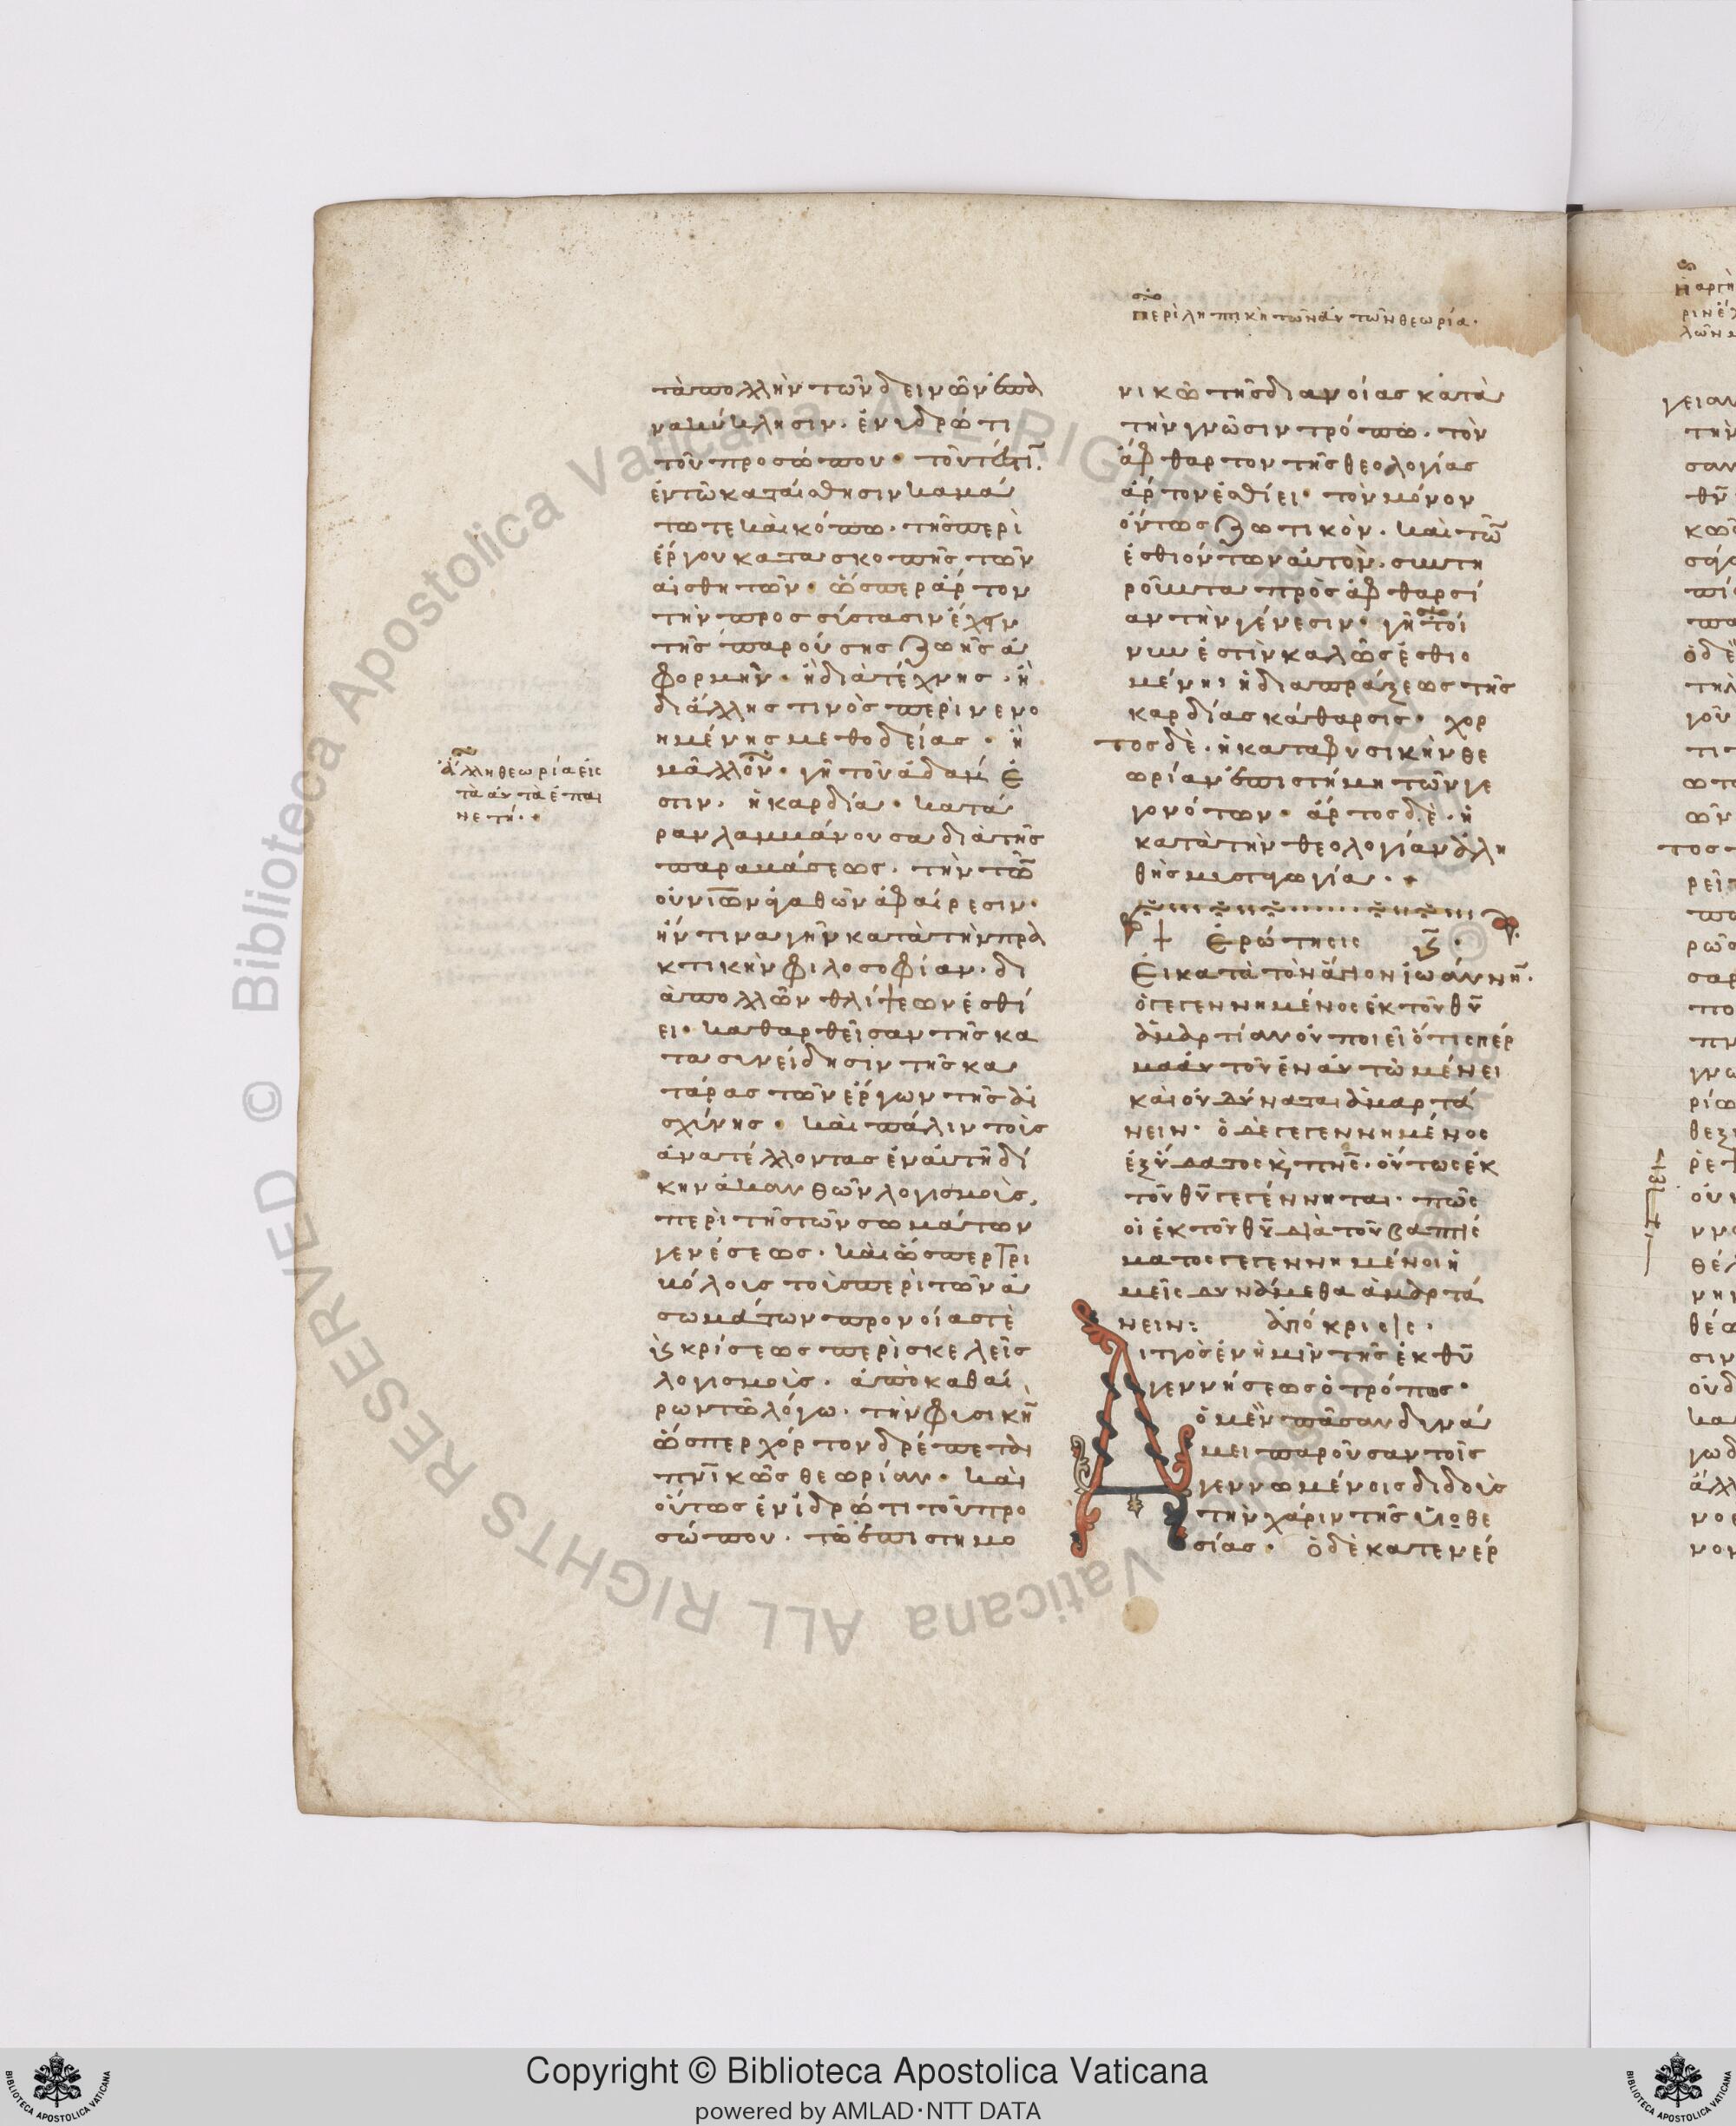 περιληπτικὴ τῶν ἀυτῶν θεωρία·
τὰ πολλὴν τῶν δεινῶν ἐπα
νακύκλησιν· ἐν ἱδρῶτι
τοῦ προσώπου· τουτέστι
ἐν τῶ κατ' αἴσθησιν καμά
τω τὲ καὶ κόπω· τῆς περὶ
ἔργου κατασκοπῆς τῶν
αἰσθητῶν· ὥσπερ ἄρτον
τὴν πρὸς σύστασιν ἔχειν
τῆς παρούσης ζωῆς ἀ
φορμήν· ἢ διὰ τέχνης· ἢ
δι ἄλλης τινὸς περινενο
ημένης μεθοδείας· ἢ
μᾶλλον· γῆ τοῦ ἀδαμ ἐ
στιν· ἡ καρδία· κατά
ραν λαμβάνουσα διὰ τῆς
παραβάσεως· τὴν τῶν
οὐνίων ἀγαθῶν ἀφαίρεσιν·
ἥν τινα γῆν κατὰ τὴν πρα
κτικὴν φιλοσοφίαν· δι
ὰ πολλῶν θλίψεων ἐσθί
ει· καθαρθεῖσαν τῆς κα
τα συνείδησιν τῆς κα
τάρας τῶν ἔργων τῆς αἰ
σχύνης· καὶ πάλιν τοὺς
ἀνατέλλοντας ἐν αὐτῆ δί
κην ἀκανθῶν λογισμοὺς,
περὶ τῆς τῶν σωμάτων
γενέσεως· καὶ ὥσπερ τρι
βόλους τοὺς περὶ τῶν ἀ
σωμάτων προνοίας τὲ
καὶ κρίσεως περισκελεῖς
λογισμοὺς· ἀποκαθαί
ρων τῶ λόγω· τὴν φυσικὴν
ὥσπερ χόρτον δρέπεται
πνικῶς θεωρίαν· καὶ
οὕτως ἐν ἱδρῶτι τοῦ προ
σώπου· τῶ ἐπιστημο
Ἄλλη θεωρία εἰς
τὰ ἀυτὰ ἐπαι
νετή·
νικῶ τῆς διανοίας κατὰ
τὴν γνῶσιν τρόπω· τὸν
ἄφθαρτον τῆς θεολογίας
ἄρτον ἐσθίει· τὸν μόνον
ὄντως ζωτικὸν· καὶ τῶν
ἐσθιόντων ἀυτὸν· συντη
ροῦντα πρὸς ἀφθαρσί
αν τὴν γένεσιν· γῆ τοί
νυν ἐστὶν καλῶς ἐσθιο
μένη· ἡ δια πράξεως τῆς
καρδίας κάθαρσις· χόρ
τος δὲ· ἡ κατα φυσικὴν θε
ωρίαν ἐπιστήμη τῶν γε
γονότων· ἄρτος δὲ· ἡ
κατὰ τὴν θεολογίαν ἀλη
θὴς μυσταγωγία·
Ἐρώτησις ϛ·
Ἐι κατὰ τὸν ἅγιον ἰωάννην·
ὁ γεγεννημένος ἐκ τοῦ θυ
ἁμαρτίαν οὐ ποιεῖ ὅτι σπέρ
μα ἀυτοῦ ἐν ἀυτῶ μένει
καὶ οὐ δύναται ἁμαρτά
νειν· ὁ δὲ γεγεννημένος
ἐξ ὕδατος κ πνς· οὕτως ἐκ
τοῦ θυ γεγέννηται· πῶς
οἱ ἐκ τοῦ θυ διὰ τοῦ βαπτίσ
ματος γεγεννημένοι ἡ
μεῖς δυνάμεθα ἁμαρτά
νειν: ἀπόκρισις·
Διττὸς ἐν ἡμῖν τῆς ἐκ θυ
γεννήσεως ὁ τρόπος·
ὁ μὲν πᾶσαν δυνά
μει παροῦσαν τοῖς
γεννωμένοις διδοὺς
τὴν χάριν τῆς υἱοθε
σίας· ὁ δὲ κατ ενέρ
Copyright © Biblioteca Apostolica Vaticana
powered by AMLAD·NTT DATA